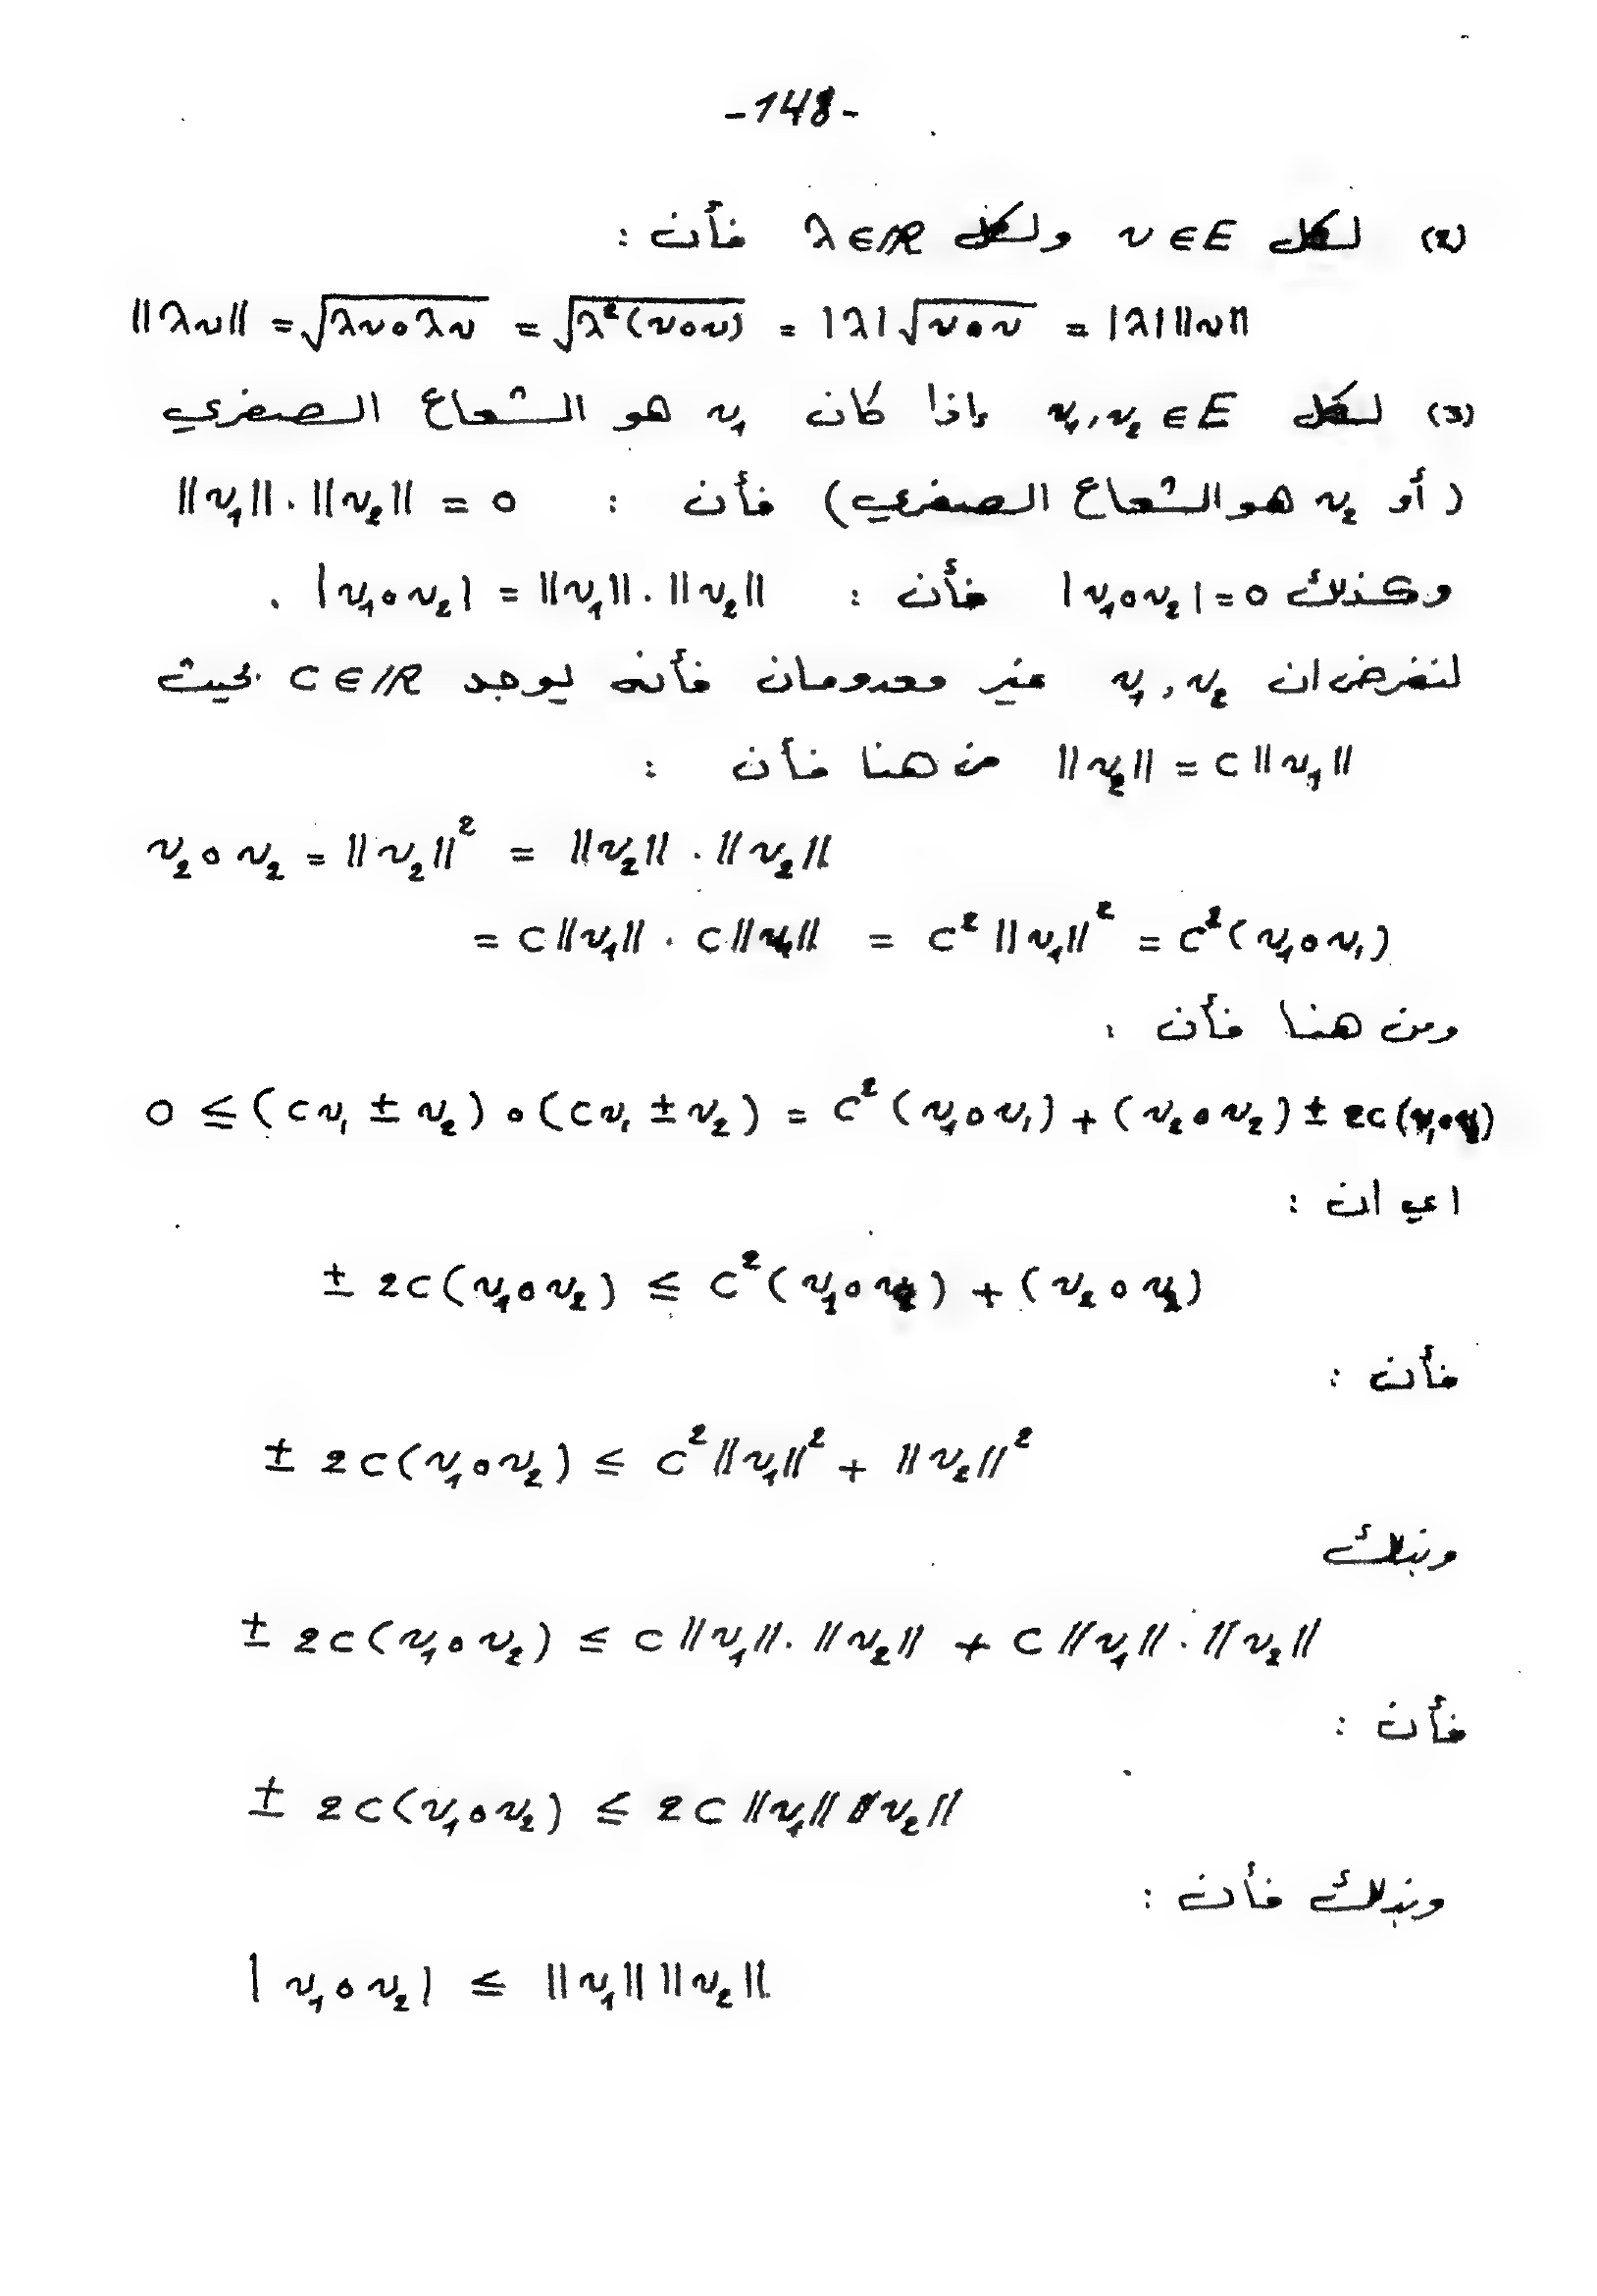 -148-
(2) لكل v ∈ E ولكل λ ∈ ℝ فأن :
‖λv‖ = √(λv∘λv) = √(λ²(v∘v)) = |λ|√(v∘v) = |λ|‖v‖
(3) لكل v₁, v₂ ∈ E إذا كان v₁ هو الشعاع الصفري
(أو v₂ هو الشعاع الصفري) فأن : ‖v₁‖.‖v₂‖ = 0
وكذلك |v₁∘v₂| = 0 فأن : |v₁∘v₂| = ‖v₁‖.‖v₂‖ .
لنفرض ان v₁, v₂ غير معدومان فأنه يوجد C ∈ ℝ بحيث
‖v₂‖ = C‖v₁‖ من هنا فأن :
v₂∘v₂ = ‖v₂‖² = ‖v₂‖ . ‖v₂‖
= C‖v₁‖ . C‖v₁‖ = C²‖v₁‖² = C²(v₁∘v₁)
ومن هنا فأن :
0 ≤ (cv₁ ± v₂)∘(cv₁ ± v₂) = C²(v₁∘v₁) + (v₂∘v₂) ± 2c(v₁∘v₂)
اي ان :
± 2c(v₁∘v₂) ≤ C²(v₁∘v₁) + (v₂∘v₂)
فأن :
± 2c(v₁∘v₂) ≤ C²‖v₁‖² + ‖v₂‖²
وبذلك
± 2c(v₁∘v₂) ≤ C‖v₁‖.‖v₂‖ + C‖v₁‖.‖v₂‖
فأن :
± 2c(v₁∘v₂) ≤ 2C‖v₁‖‖v₂‖
وبذلك فأن :
|v₁∘v₂| ≤ ‖v₁‖‖v₂‖.